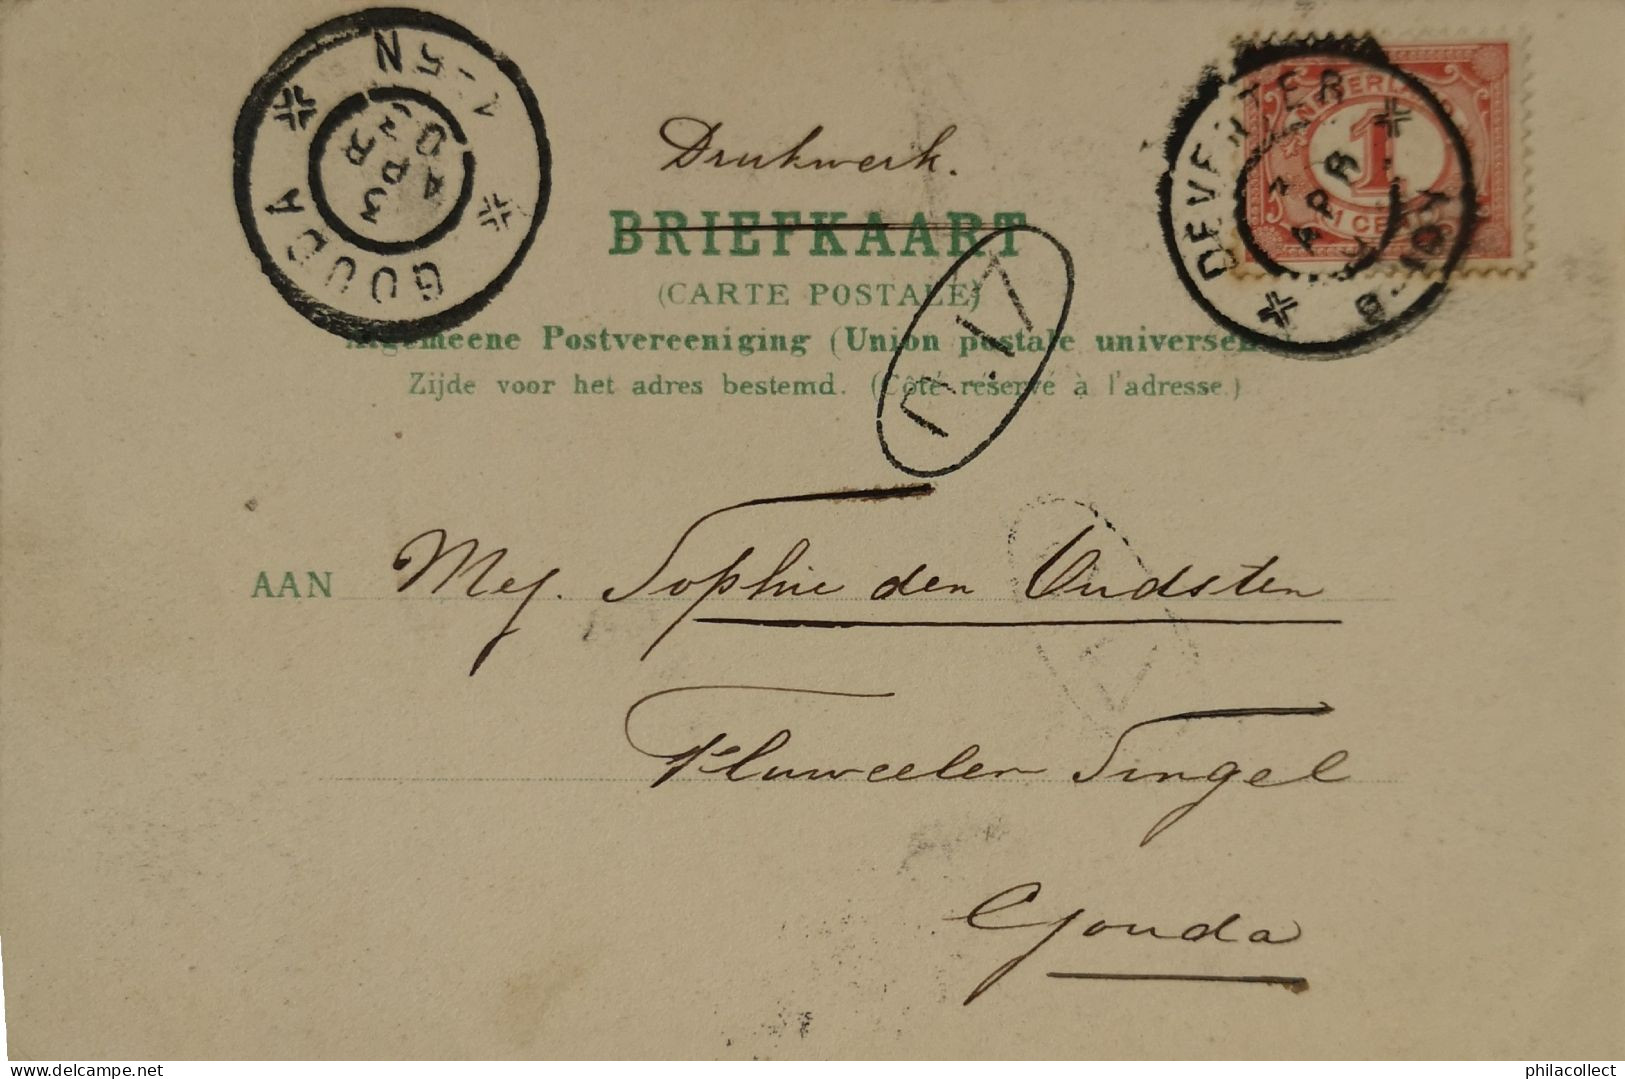 GOUDA
3 APR
1-5N
DEVENTER
3 APR
8-10V
NEDERLAND
1
1 CENT
Drukwerk.
BRIEFKAART
(CARTE POSTALE)
Algemeene Postvereeniging (Union postale universelle)
Zijde voor het adres bestemd. (Côté réservé à l'adresse.)
AAN Mej. Sophie den Oudsten
Fluweelen Singel
Gouda
philacollect